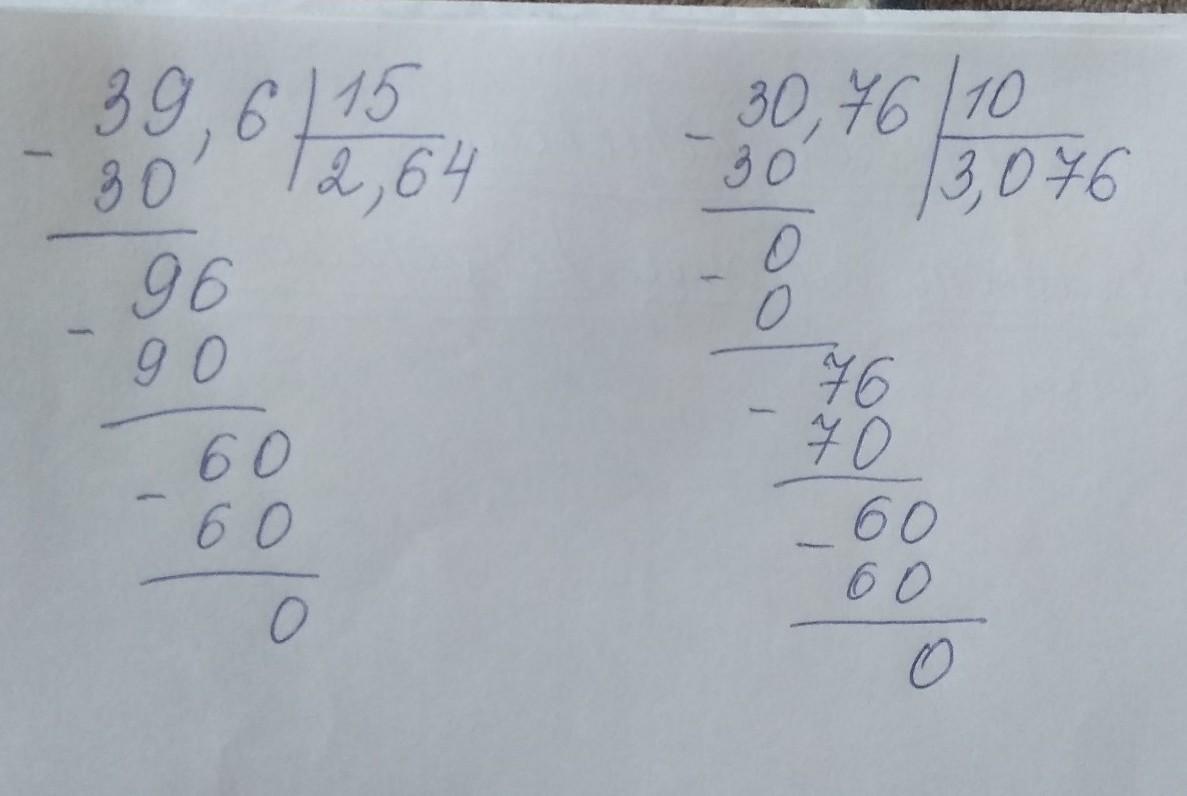 39,6 15
- 30 2,64
96
- 90
60
- 60
0
30,76 10
- 30 3,076
0
- 0
76
- 70
60
- 60
0